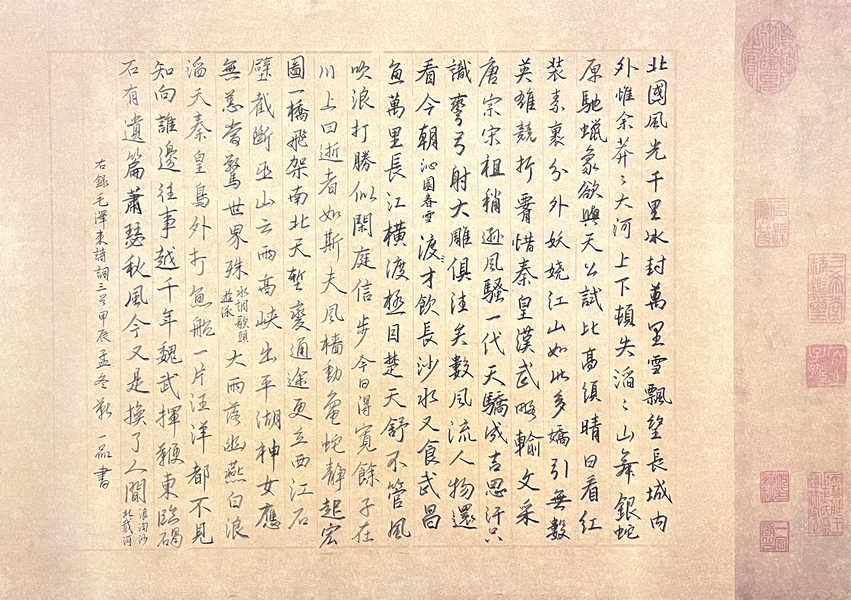 北國風光千里冰封萬里雪飄望長城内
外惟余莽〻大河上下頓失滔〻山舞銀蛇
原馳蠟象欲與天公試比高須晴日看紅
装素裹分外妖嬈江山如此多嬌引無數
英雄競折腰惜秦皇漢武略輸文采
唐宗宋祖稍遜風騷一代天驕成吉思汗只
識彎弓射大雕俱往矣數風流人物還
看今朝沁園春雪渡才飲長沙水又食武昌
魚萬里長江橫渡極目楚天舒不管風
吹浪打勝似閑庭信步今日得寬餘子在
川上曰逝者如斯夫風檣動龜蛇靜起宏
圖一橋飛架南北天塹變通途更立西江石
壁截斷巫山云雨高峽出平湖神女應
無恙當驚世界殊水調歌頭游泳大雨落幽燕白浪
滔天秦皇島外打魚船一片汪洋都不見
知向誰邊往事越千年魏武揮鞭東臨碣
石有遺篇蕭瑟秋風今又是換了人間浪淘沙北戴河
右錄毛澤東詩詞三首甲辰孟冬靳一品書